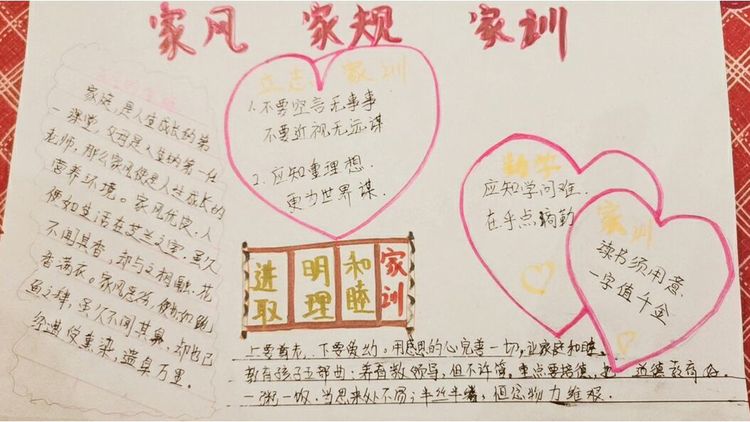 家风 家规 家训
家庭,是人生成长的第
一课堂,父母是人生的第一任
老师,那么家风便是人生成长的
营养环境。家风优良,人
便如生活在芝兰之室,虽久
不闻其香,却与之相融,花
香满衣。家风恶劣,便如切鲍
鱼之肆,虽久不闻其臭,却也已
遗臭万里。
立志 家训
1.不要空言无事事
不要近视无远谋
2.应知重理想
更为世界谋.
勤学
应知学问难.
在乎点滴勤
家训
读书须用意
一字值千金
家训
和睦
明理
进取
上要尊老,下要爱幼。用感恩的心完善一切,让家庭和睦。
教育孩子五部曲:养育教领导,但不许惯,重点要培德,把 道德教育好。
一粥一饭,当思来处不易;半丝半缕,恒念物力维艰.